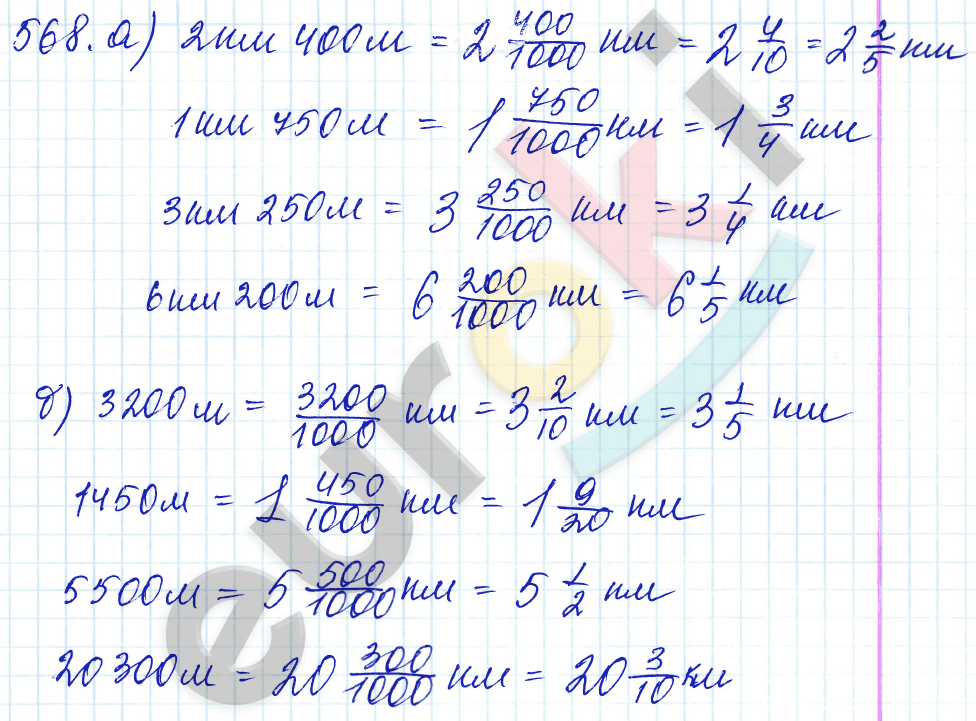 568. а) 2км 400м = 2 400/1000 км = 2 4/10 = 2 2/5 км
1км 750м = 1 750/1000 км = 1 3/4 км
3км 250м = 3 250/1000 км = 3 1/4 км
6км 200м = 6 200/1000 км = 6 1/5 км
б) 3200м = 3200/1000 км = 3 2/10 км = 3 1/5 км
1450м = 1 450/1000 км = 1 9/20 км
5500м = 5 500/1000 км = 5 1/2 км
20300м = 20 300/1000 км = 20 3/10 км
euroki